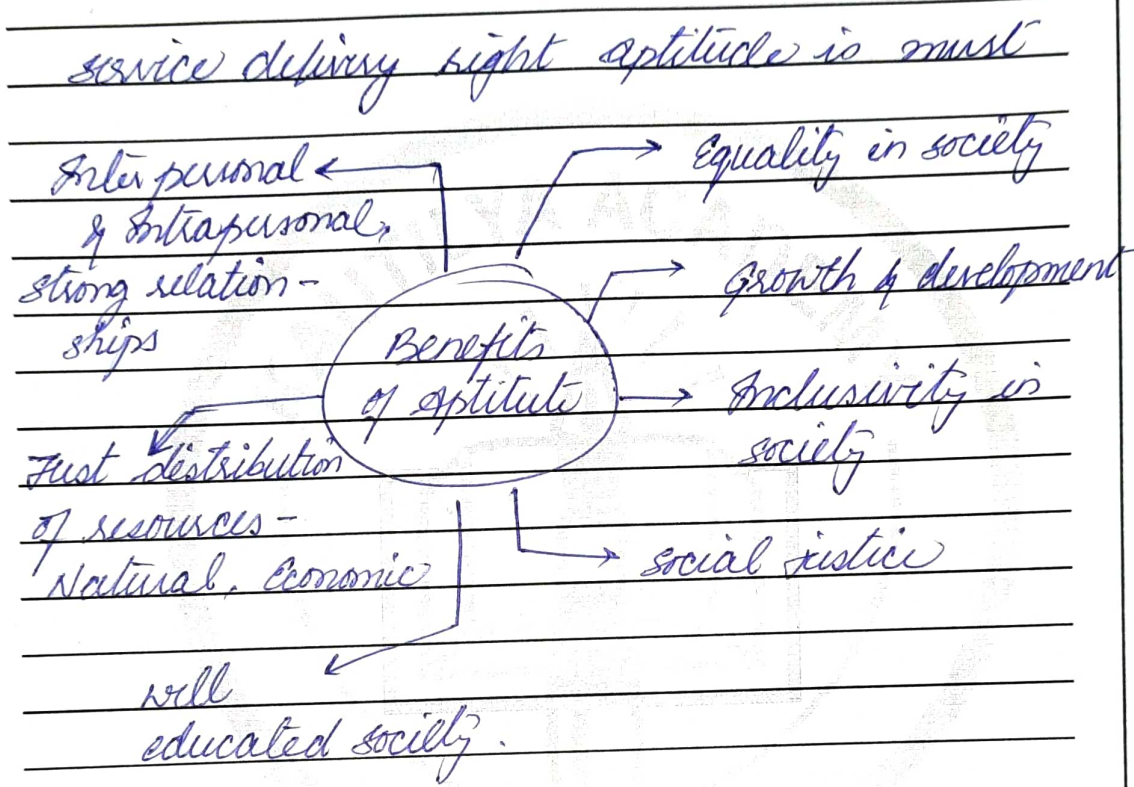 service delivery right aptitude is must
Inter personal
& Intrapersonal,
strong relation-
ships
Equality in society
Growth & development
Benefits
of Aptitute
Inclusivity in
society
Just distribution
of resources -
Natural, Economic
social justice
well
educated society.